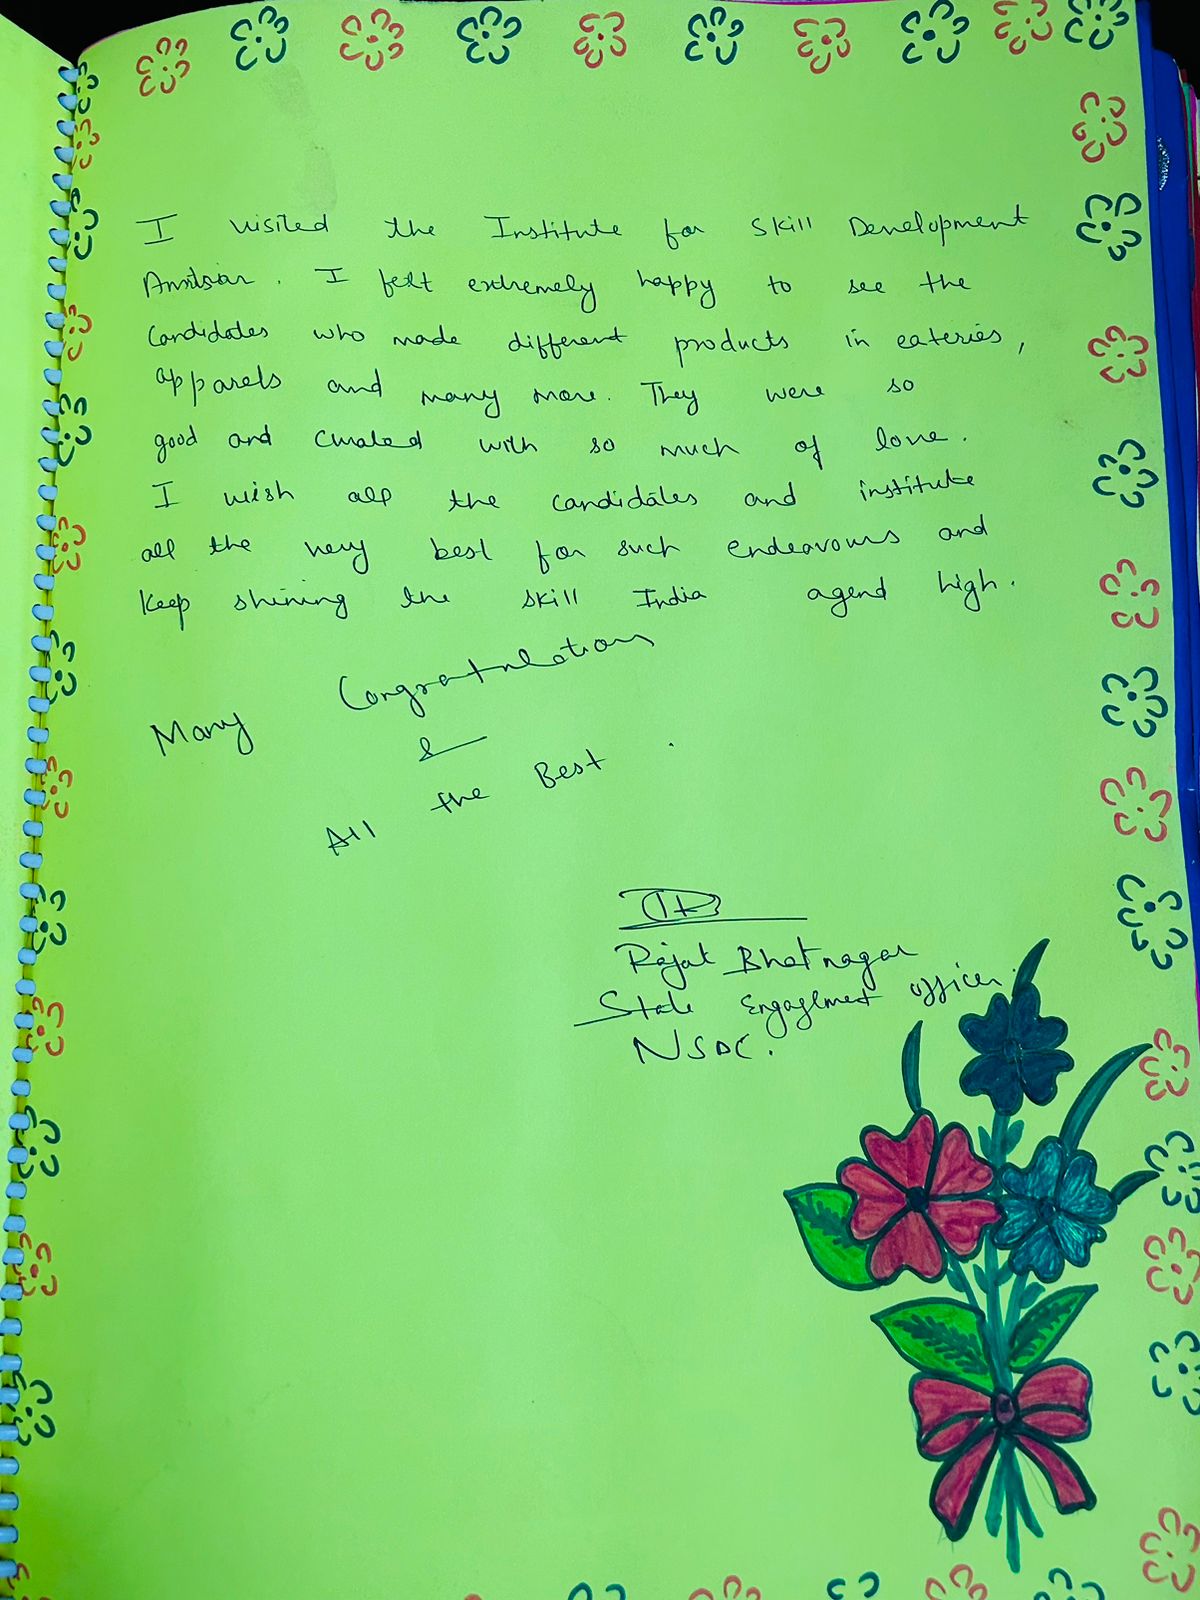 I visited the Institute for Skill Development
Amritsar. I felt extremely happy to see the
candidates who made different products in eateries,
apparels and many more. They were so
good and curated with so much of love.
I wish all the candidates and institute
all the very best for such endeavours and
keep shining the skill India agend high.
Many Congratulations
&
All the Best.
Rajat Bhatnagar
State Engagement officer.
NSDC.